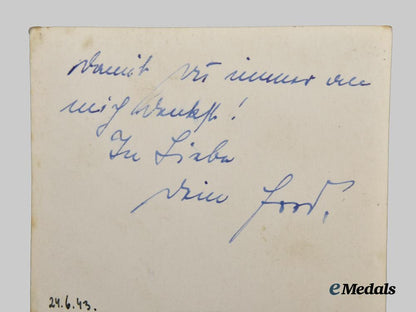 Damit Du immer an
mich denkst!
In Liebe
Dein Ferd.
24.6.43.
eMedals